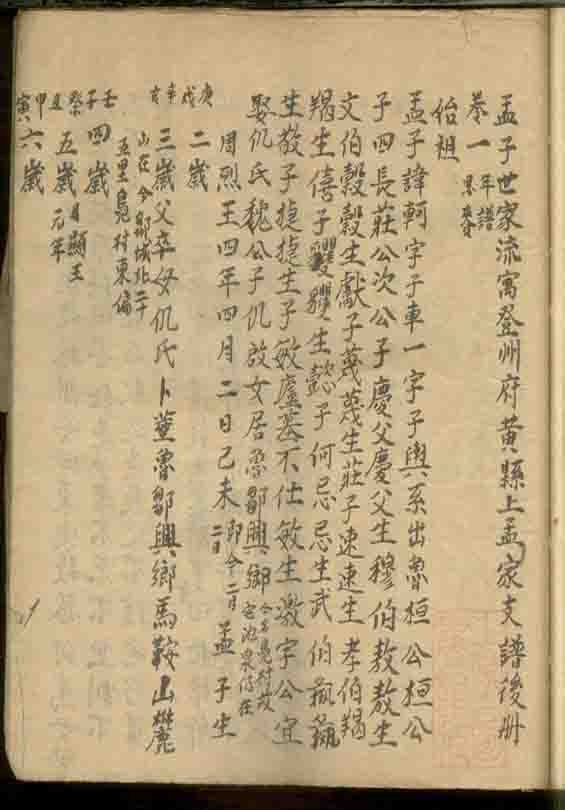 孟子世家流寓登州府黃縣上孟家支譜後册
卷一 年譜
始祖
孟子諱軻字子車一字子輿系出魯桓公桓公
子四長莊公次公子慶父慶父生穆伯敖敖生
文伯穀穀生獻子蔑蔑生莊子速速生孝伯羯
羯生僖子貜貜生懿子何忌忌生武伯彘彘
生敬子捷捷生子敏廬墓不仕敏生激字公宜
娶仉氏魏公子仉啟女居魯鄒興鄉 今名鳧村故宅池泉仍在
周烈王四年四月二日己未 即今二月二日 孟子生
庚戌 二歲
辛亥 三歲父卒母仉氏卜葬魯鄒興鄉馬鞍山麓
山在今鄒城北二十五里鳧村東偏
壬子 四歲
癸丑 五歲 周顯王元年
甲寅 六歲